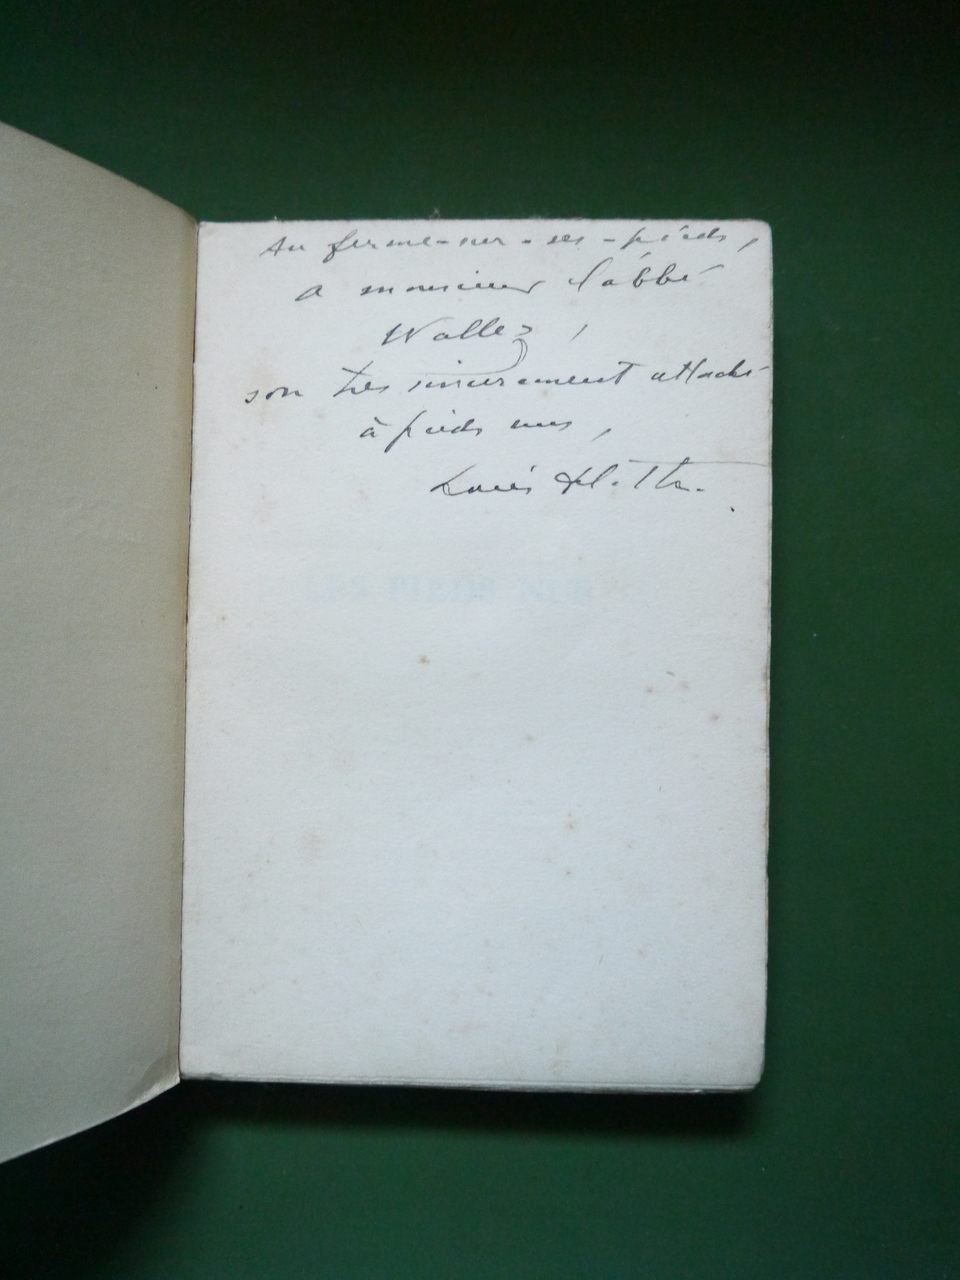 Au ferme-sur-ses-pieds,
à monsieur l'abbé
Wallez,
son très sincèrement attaché
à pieds nus,
Louis
LES PIEDS NUS